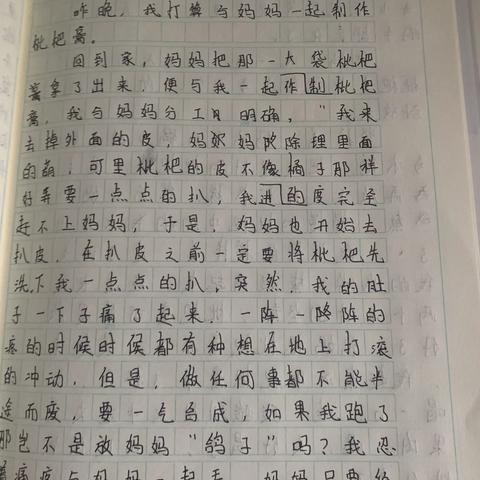 昨晚,我打算与妈妈一起制作
枇杷膏。
回到家,妈妈把那一大袋枇杷
拿了出来,便与我一起作制枇杷
膏,我与妈妈分工明确,"我来
去掉外面的皮,妈妈除里面
的,可里枇杷的皮不像橘子那样
好弄要一点点的扒,我进的度完全
赶不上妈妈,于是,妈妈也开始去
扒皮,在扒皮之前一定要将枇杷先
洗下我一点点的扒,突然,我的肚
子一下子痛了起来,一阵一阵的
的时候时候都有种想在地上打滚
的冲动,但是,做任何事都不能半
途而废,要一气合成,如果我跑了
那岂不是放妈妈"鸽子"吗?我忍
着痛疼与妈妈一起弄,妈妈只要